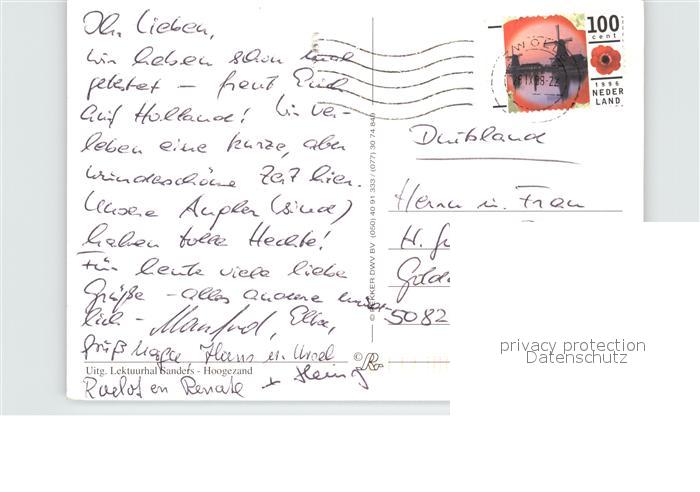 Ihr Lieben,
wir haben schon mal
getestet – freut Euch
auf Holland! Wir ver-
leben eine kurze, aber
wunderschöne Zeit hier.
Unsere Angler (sind)
haben tolle Hechte!
Für heute viele liebe
Grüße – alles andere münd-
lich – Manfred, Elke,
Hans u. Ursel
Renate + Heinz
Uitg. Lektuurhal Sanders - Hoogezand
DEKKER DWV BV (050) 40 91 333 / (077) 30 74 848
©
100
cent
1996
NEDER
LAND
Duitsland
Herrn u. Frau
H.
Gold
5082
privacy protection
Datenschutz